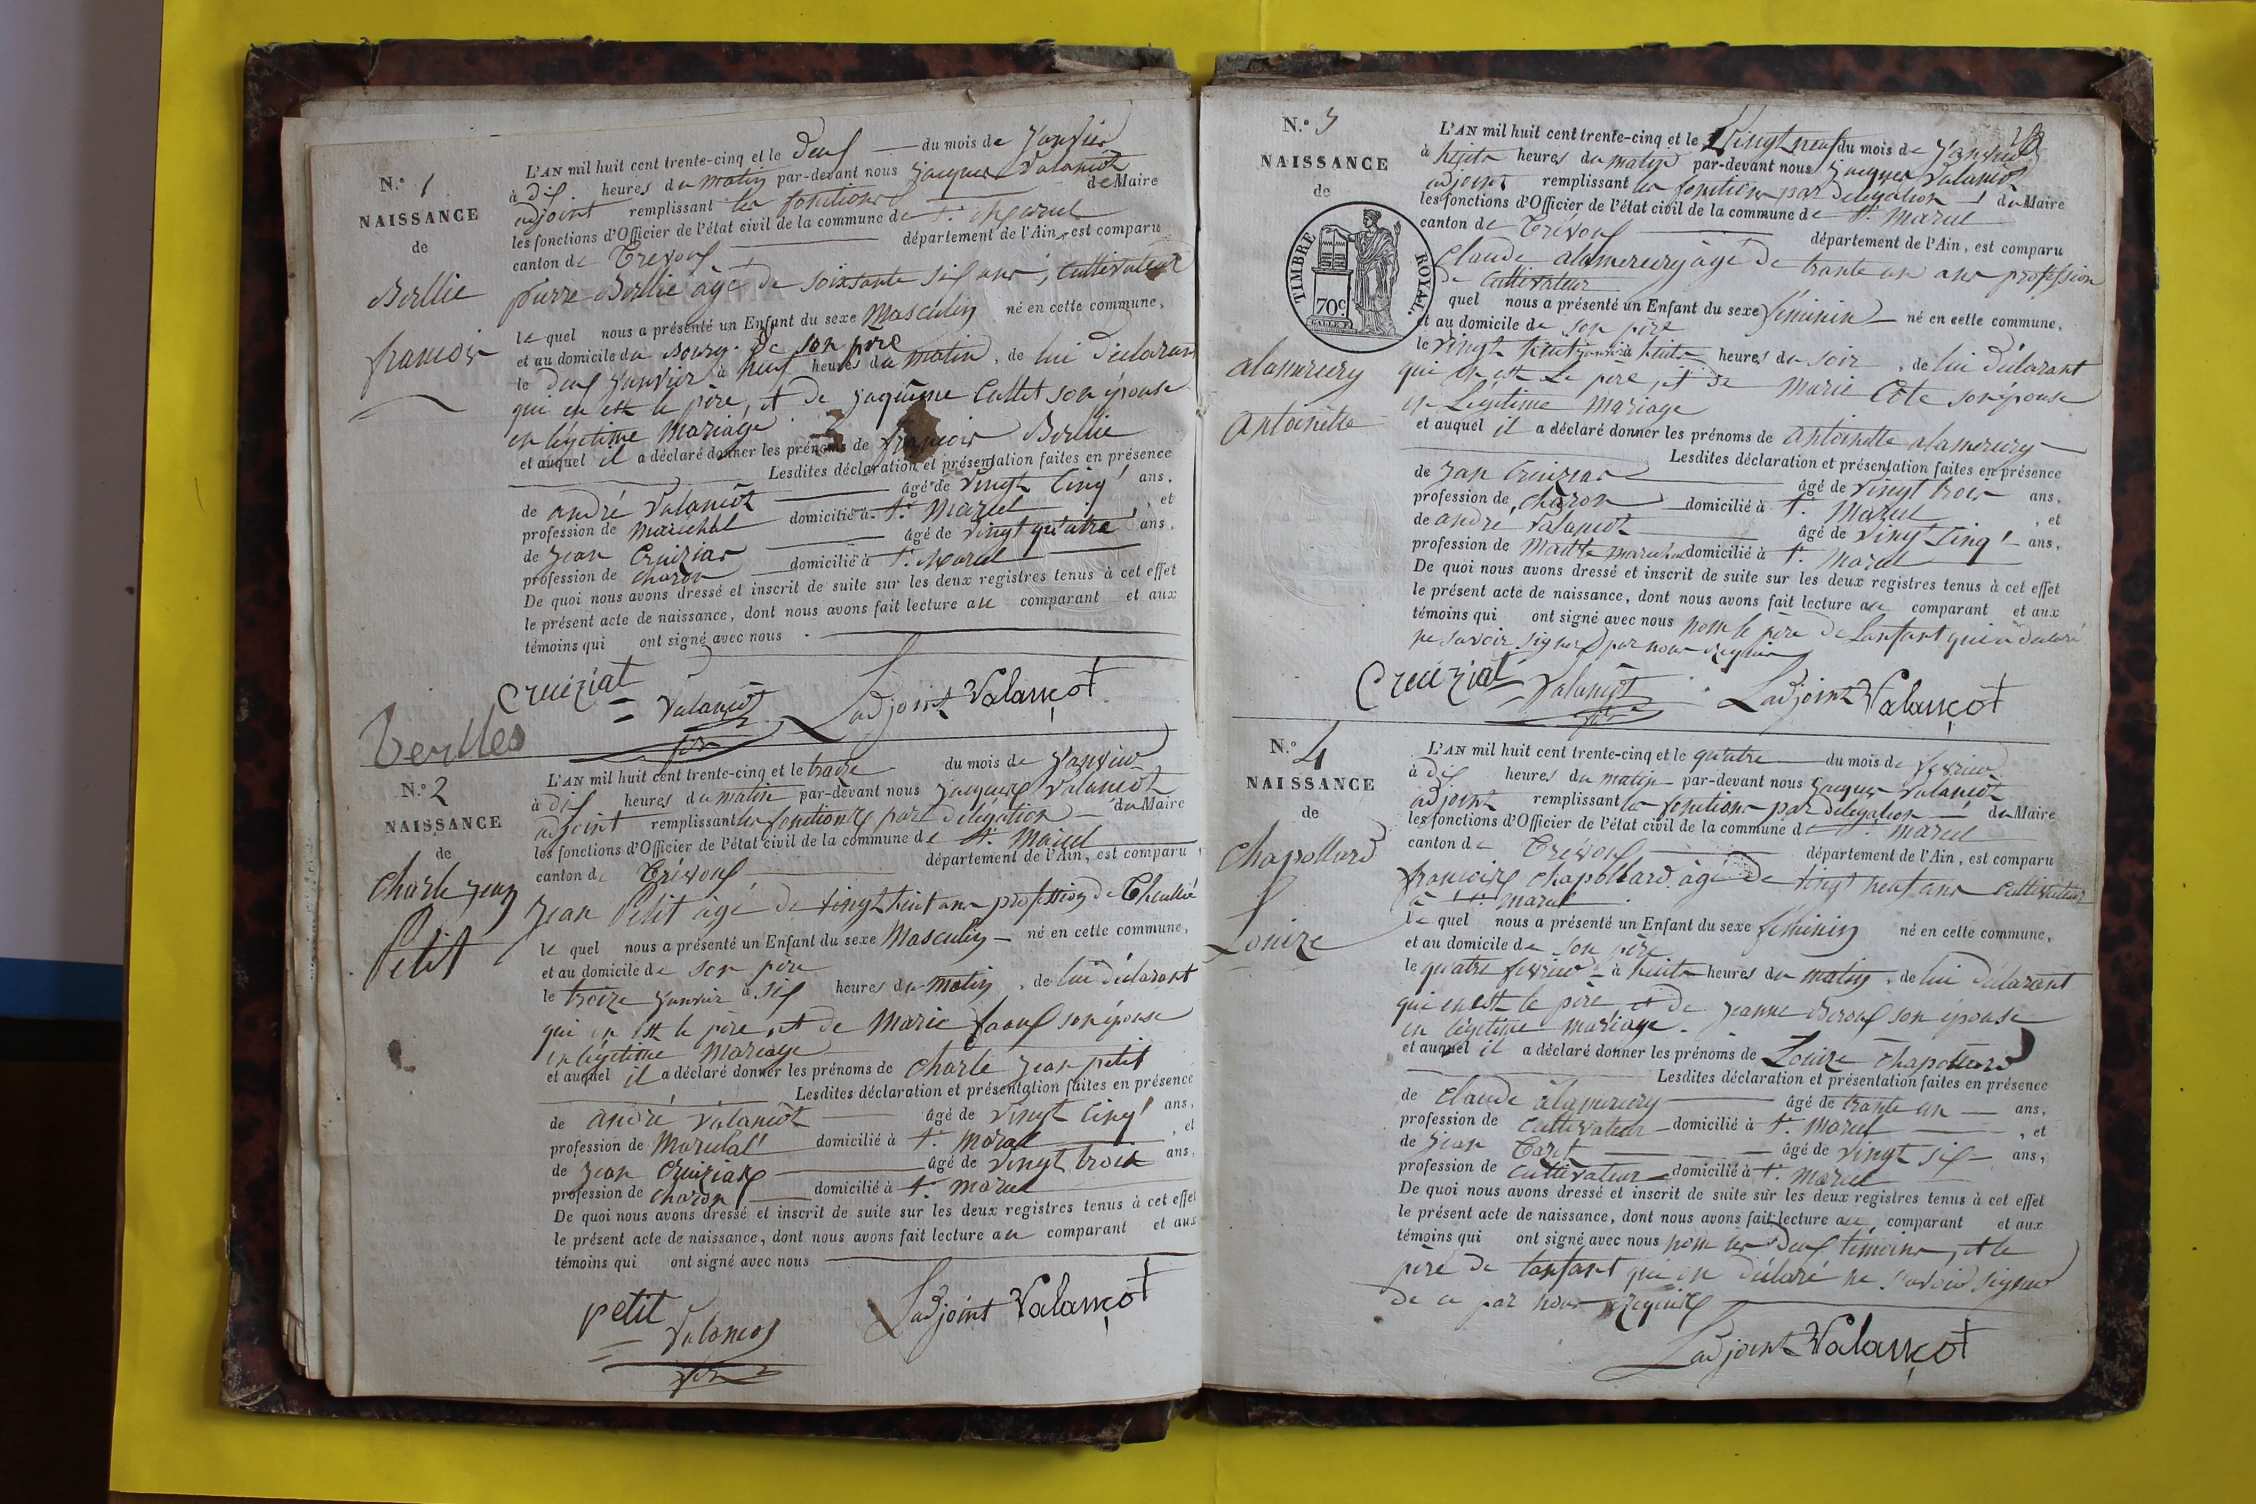 N.° 1
NAISSANCE
de
Berllie
françois
L'AN mil huit cent trente-cinq et le deux du mois de janvier
à dix heures du matin par-devant nous jacques Valançot
adjoint remplissant les fonctions de Maire
les fonctions d'Officier de l'état civil de la commune de St. Marcel
canton de Trevoux département de l'Ain, est comparu
pierre Berllie âgé de soixante six ans, Cultivateur
le quel nous a présenté un Enfant du sexe Masculin né en cette commune,
et au domicile du Bourg. de son père
le deux janvier à neuf heures du matin, de lui déclarant
qui en est le père, et de jaquême Cattet son épouse
en légitime Mariage
et auquel il a déclaré donner les prénoms de françois Berllie
Lesdites déclaration et présentation faites en présence
de andré Valançot âgé de Vingt Cinq ans,
profession de marechal domicilié à St. Marcel, et
de jean Cruiziat âgé de Vingt quatre ans,
profession de charon domicilié à St. Marcel
De quoi nous avons dressé et inscrit de suite sur les deux registres tenus à cet effet
le présent acte de naissance, dont nous avons fait lecture au comparant et aux
témoins qui ont signé avec nous
Cruiziat Valançot Ladjoint Valançot
N.° 2
NAISSANCE
de
Charle jean
Petit
L'AN mil huit cent trente-cinq et le traize du mois de janvier
à dix heures du matin par-devant nous jacques Valançot
adjoint remplissant les fonctions par délégation du Maire
les fonctions d'Officier de l'état civil de la commune de St. Marcel
canton de Trévoux département de l'Ain, est comparu
jean Petit âgé de vingt huit ans profession de
le quel nous a présenté un Enfant du sexe Masculin né en cette commune,
et au domicile de son père
le treize janvier à six heures du matin, de lui déclarant
qui en est le père, et de Marie faoux son épouse
en légitime Mariage
et auquel il a déclaré donner les prénoms de Charle jean petit
Lesdites déclaration et présentation faites en présence
de andré Valançot âgé de Vingt Cinq ans,
profession de Marechal domicilié à St. Marcel, et
de jean Cruiziat âgé de Vingt trois ans,
profession de charon domicilié à St. Marcel
De quoi nous avons dressé et inscrit de suite sur les deux registres tenus à cet effet
le présent acte de naissance, dont nous avons fait lecture au comparant et aux
témoins qui ont signé avec nous
petit Valançot Ladjoint Valançot
N.° 3
NAISSANCE
de
TIMBRE ROYAL.
70c.
alamercery
antoinette
L'AN mil huit cent trente-cinq et le Vingt neuf du mois de janvier
à huite heures du matin par-devant nous jacques Valançot
adjoint remplissant les fonctions par délégation du Maire
les fonctions d'Officier de l'état civil de la commune de St. Marcel
canton de Trévoux département de l'Ain, est comparu
Claude alamercery âgé de trante un ans profession
de Cultivateur
quel nous a présenté un Enfant du sexe féminin né en cette commune,
et au domicile de son père
le vingt huit janvier à huite heures du soir, de lui déclarant
qui en est Le père, et de Marie Cote son épouse
en Légitime Mariage
et auquel il a déclaré donner les prénoms de antoinette alamercery
Lesdites déclaration et présentation faites en présence
de jean Cruiziat âgé de Vingt trois ans,
profession de charon domicilié à St. Marcel, et
de andré Valançot âgé de Vingt Cinq ans,
profession de Maitre marechal domicilié à St. Marcel
De quoi nous avons dressé et inscrit de suite sur les deux registres tenus à cet effet
le présent acte de naissance, dont nous avons fait lecture au comparant et aux
témoins qui ont signé avec nous nom le père de Lenfant qui a déclaré
ne savoir signer par nous requis
Cruiziat Valançot Ladjoint Valançot
N.° 4
NAISSANCE
de
Chapollard
Louize
L'AN mil huit cent trente-cinq et le quatre du mois de fevrier
à dix heures du matin par-devant nous jacques Valançot
adjoint remplissant les fonctions par délégation du Maire
les fonctions d'Officier de l'état civil de la commune de St. Marcel
canton de Trevoux département de l'Ain, est comparu
françois Chapollard âgé de vingt neuf ans Cultivateur
à St. Marcel
le quel nous a présenté un Enfant du sexe féminin né en cette commune,
et au domicile de son père
le quatre fevrier à huite heures du matin, de lui déclarant
qui en est le père et de jeanne Beroux son épouse
en légitime mariage.
et auquel il a déclaré donner les prénoms de Louize Chapollard
Lesdites déclaration et présentation faites en présence
de Claude alamercery âgé de trante un ans,
profession de Cultivateur domicilié à St. Marcel, et
de jean âgé de vingt six ans,
profession de Cultivateur domicilié à St. Marcel
De quoi nous avons dressé et inscrit de suite sur les deux registres tenus à cet effet
le présent acte de naissance, dont nous avons fait lecture au comparant et aux
témoins qui ont signé avec nous nom les deux témoins, et le
père de Lenfant qui on déclaré ne savoir signer
de ce par nous requis
Ladjoint Valançot